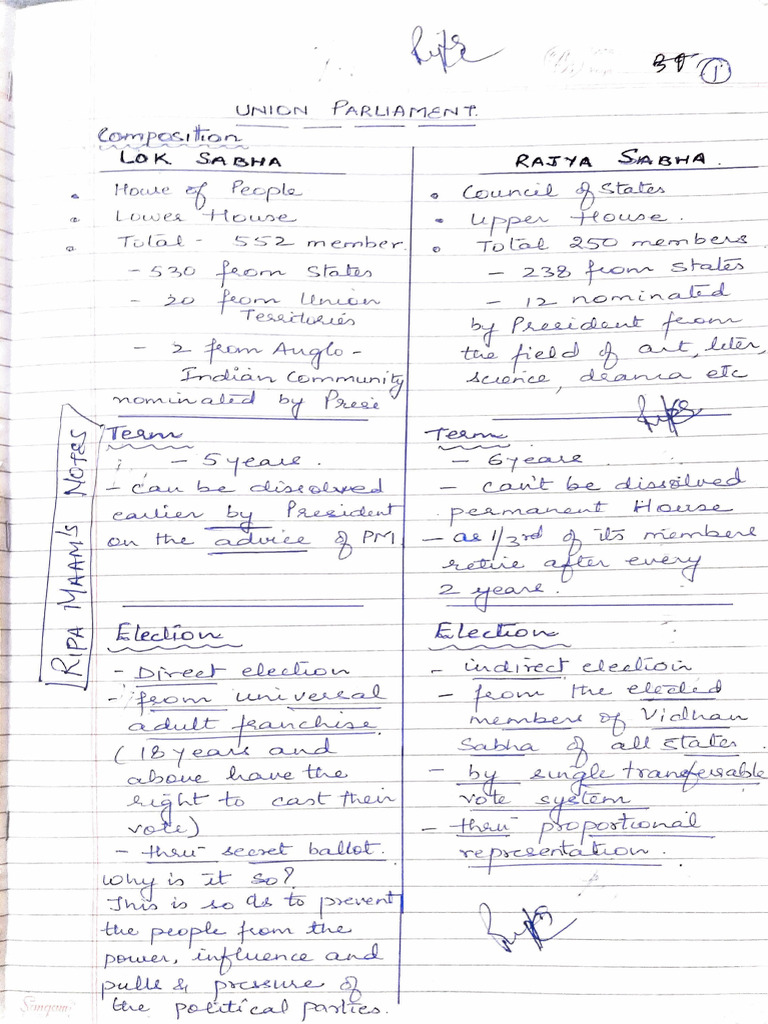 UNION PARLIAMENT.
Composition
LOK SABHA
• House of People
• Lower House
• Total - 552 member.
- 530 from States
- 20 from Union
Territories
- 2 from Anglo -
Indian Community
nominated by Presi
Term
- 5 years.
- can be dissolved
earlier by President
on the advice of PM
Election
- Direct election
- from universal
adult franchise.
(18 years and
above have the
right to cast their
vote)
- thru secret ballot.
Why is it so?
This is so as to prevent
the people from the
power, influence and
pulls & pressure of
the political parties.
RAJYA SABHA.
• Council of States
• Upper House.
• Total 250 members
- 238 from States
- 12 nominated
by President from
the field of art, liter,
science, drama etc
Term
- 6 years.
- can't be dissolved
permanent House
- as 1/3rd of its members
retire after every
2 years.
Election
- indirect election
- from the elected
members of Vidhan
Sabha of all states
- by single transferable
vote system
- thru proportional
representation.
RIPA MAAM'S NOTES
Sangam